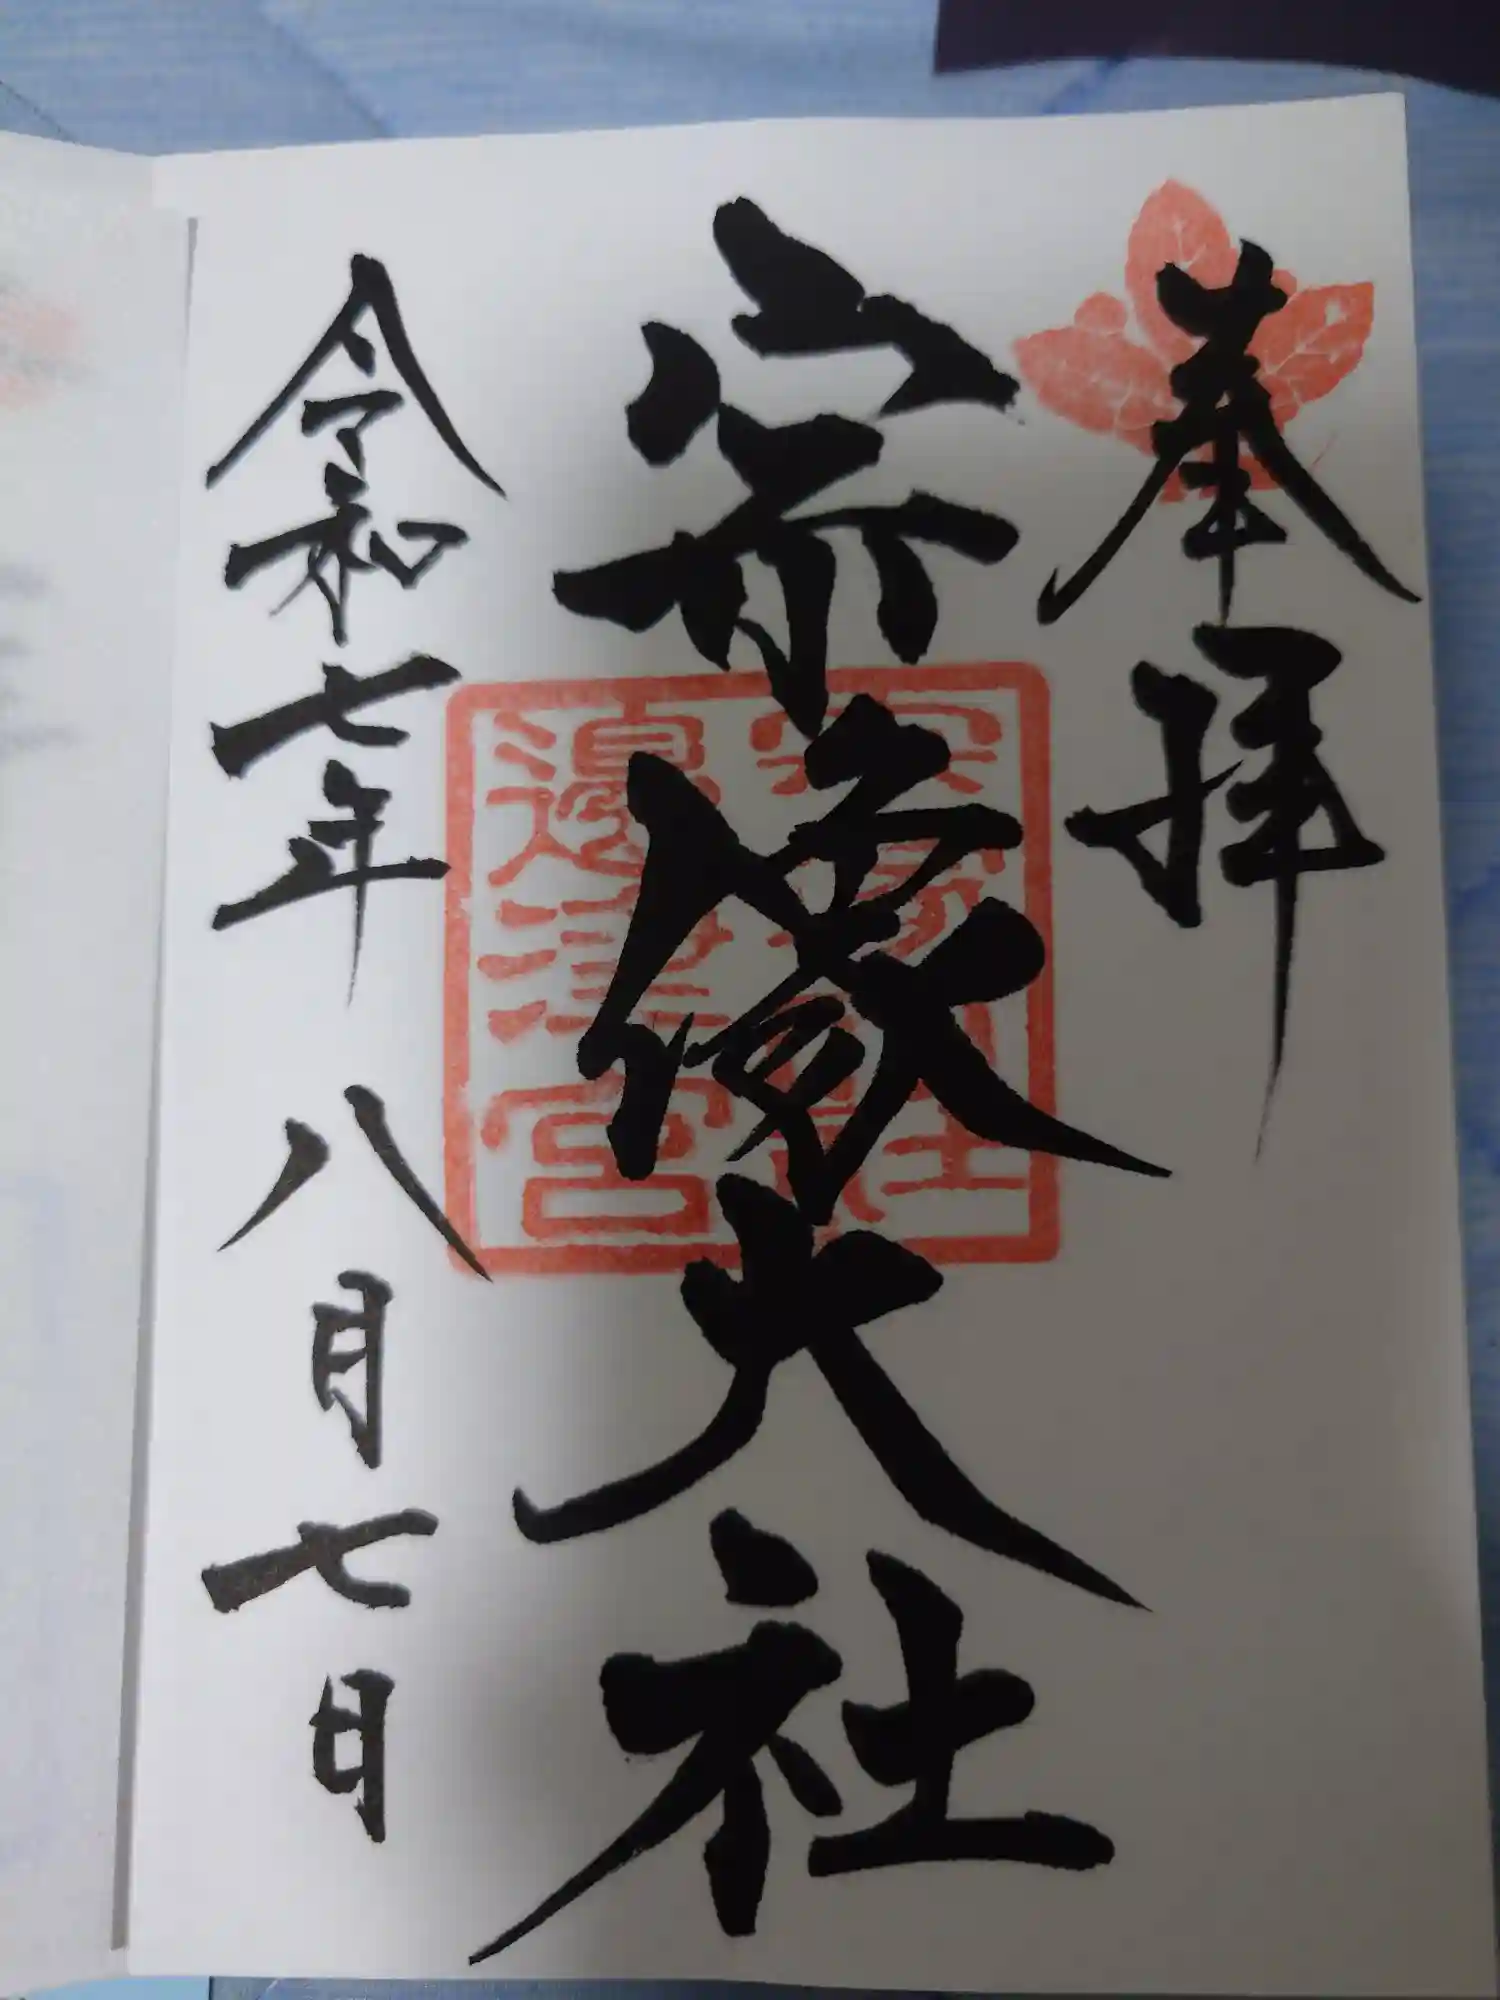 奉拝
宗像大社
宗像大社
邊津宮
令和七年 八月七日